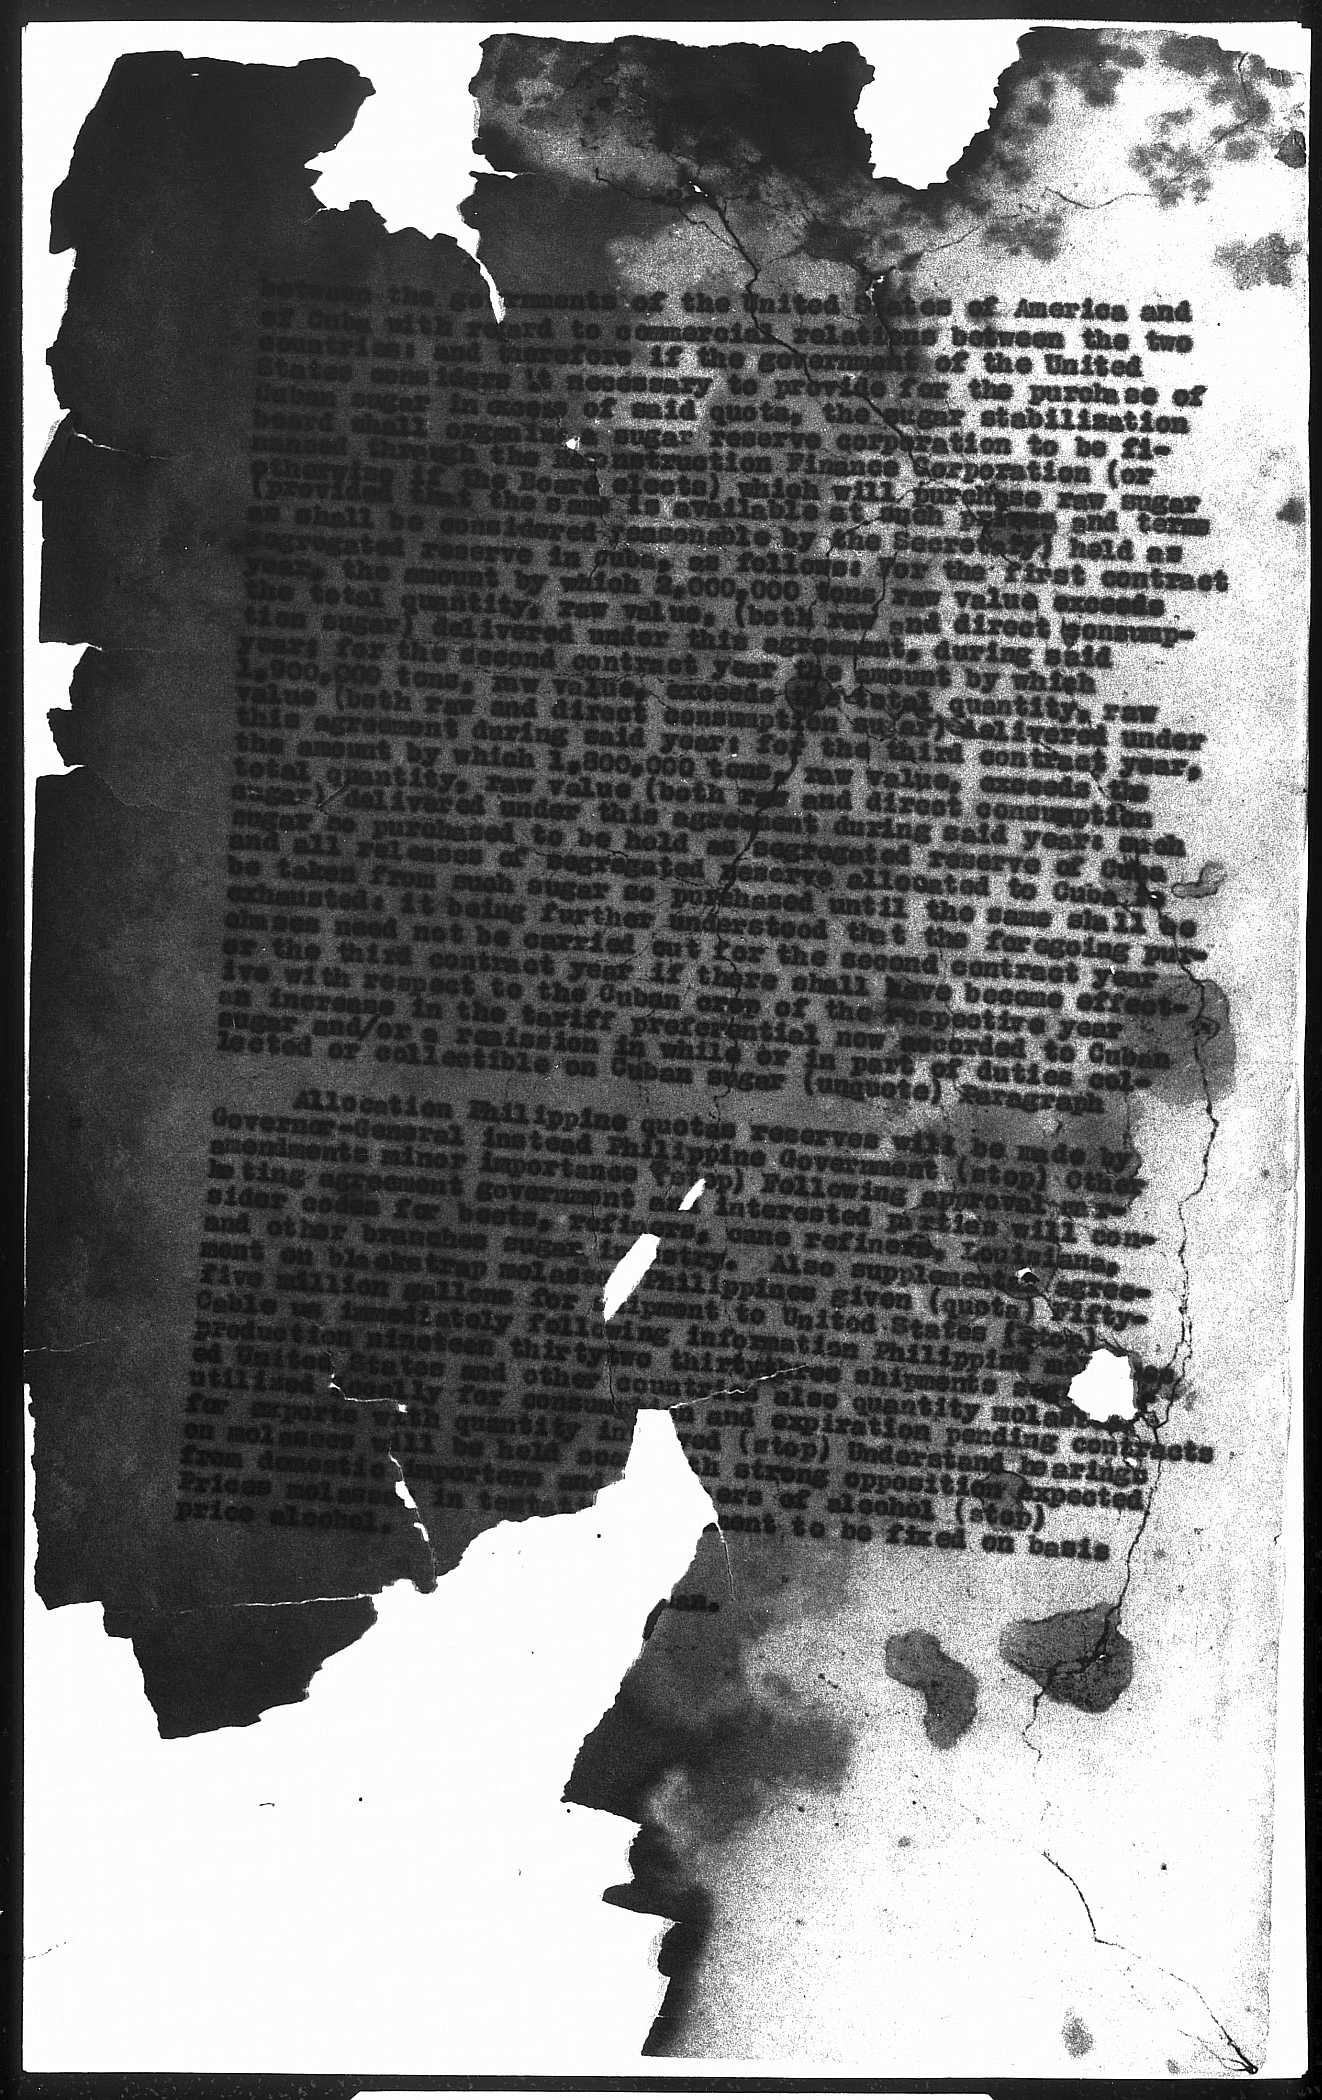 between the governments of the United States of America and
of Cuba with regard to commercial relations between the two
countries; and therefore if the government of the United
States considers it necessary to provide for the purchase of
Cuban sugar in excess of said quota, the sugar stabilization
board shall organize a sugar reserve corporation to be fi-
nanced through the Reconstruction Finance Corporation (or
otherwise if the Board elects) which will purchase raw sugar
(provided that the same is available at such prices and terms
as shall be considered reasonable by the Secretary) held as
segregated reserve in Cuba, as follows: For the first contract
year, the amount by which 2,000,000 tons raw value exceeds
the total quantity, raw value, (both raw and direct consump-
tion sugar) delivered under this agreement, during said
year; for the second contract year the amount by which
1,900,000 tons, raw value, exceeds the total quantity, raw
value (both raw and direct consumption sugar) delivered under
this agreement during said year; for the third contract year,
the amount by which 1,800,000 tons, raw value, exceeds the
total quantity, raw value (both raw and direct consumption
sugar) delivered under this agreement during said year; such
sugar so purchased to be held as segregated reserve of Cuba
and all releases of segregated reserve allocated to Cuba
be taken from such sugar so purchased until the same shall be
exhausted; it being further understood that the foregoing pur-
chases need not be carried out for the second contract year
or the third contract year if there shall have become effect-
ive with respect to the Cuban crop of the respective year
an increase in the tariff preferential now accorded to Cuban
sugar and/or a remission in while or in part of duties col-
lected or collectible on Cuban sugar (unquote) Paragraph
Allocation Philippine quotas reserves will be made by
Governor-General instead Philippine Government (stop) Other
amendments minor importance (stop) Following approval mar-
keting agreement government and interested parties will con-
sider codes for beets, refiners, cane refiners, Louisiana,
and other branches sugar industry. Also supplemental agree-
ment on blackstrap molasses Philippines given (quota) Fifty-
five million gallons for shipment to United States (stop)
Cable us immediately following information Philippine
production nineteen thirtytwo thirtythree shipments
ed United States and other countries also quantity
utilized locally for consumption and expiration pending contracts
for exports with quantity involved (stop) Understand hearings
on molasses will be held strong opposition expected
from domestic importers and of alcohol (stop)
Prices molasses in to be fixed on basis
price alcohol.